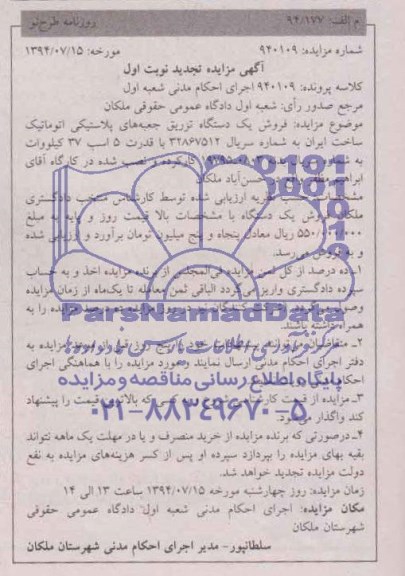 م الف: ۹۴/۱۷۷
روزنامه طرح نو
شماره مزایده: ۹۴۰۱۰۹
مورخه: ۱۳۹۴/۰۷/۱۵
آگهی مزایده تجدید نوبت اول
کلاسه پرونده: ۹۴۰۱۰۹ اجرای احکام مدنی شعبه اول
مرجع صدور رأی: شعبه اول دادگاه عمومی حقوقی ملکان
موضوع مزایده: فروش یک دستگاه تزریق جعبه‌های پلاستیکی اتوماتیک
ساخت ایران به شماره سریال ۳۲۸۶۷۵۱۲ با قدرت ۵ اسب ۳۷ کیلووات
به شماره کارکرده و نصب شده در کارگاه آقای
ابراهیم حسن‌آباد ملکان
مشخصات نظریه ارزیابی شده توسط کارشناس منتخب دادگستری
ملکان فروش یک دستگاه با مشخصات بالا قیمت روز و پایه به مبلغ
۵۵۰/۰۰۰/۰۰۰ ریال معادل پنجاه و پنج میلیون تومان برآورد و ارزیابی شده
و به فروش می‌رسد.
۱ـ ده درصد از کل ثمن مزایده فی‌المجلس از برنده مزایده اخذ و به حساب
سپرده دادگستری واریز می‌گردد الباقی ثمن معامله تا یک‌ماه از زمان مزایده
وصول مزایده را به
همراه داشته باشند.
ParsNamadData
۲ـ متقاضیان مزایده به
دفتر اجرای احکام مدنی ارسال نمایند مورد مزایده را با هماهنگی اجرای
احکام
پایگاه اطلاع رسانی مناقصه و مزایده
۳ـ مزایده از قیمت که بالاترین قیمت را پیشنهاد
کند واگذار می‌شود.
۰۲۱-۸۸۳۴۹۶۷۰-۵
۴ـ درصورتی که برنده مزایده از خرید منصرف و یا در مهلت یک ماهه نتواند
بقیه بهای مزایده را بپردازد سپرده او پس از کسر هزینه‌های مزایده به نفع
دولت مزایده تجدید خواهد شد.
زمان مزایده: روز چهارشنبه مورخه ۱۳۹۴/۰۷/۱۵ ساعت ۱۳ الی ۱۴
مکان مزایده: اجرای احکام مدنی شعبه اول دادگاه عمومی حقوقی
شهرستان ملکان
سلطانپور- مدیر اجرای احکام مدنی شهرستان ملکان